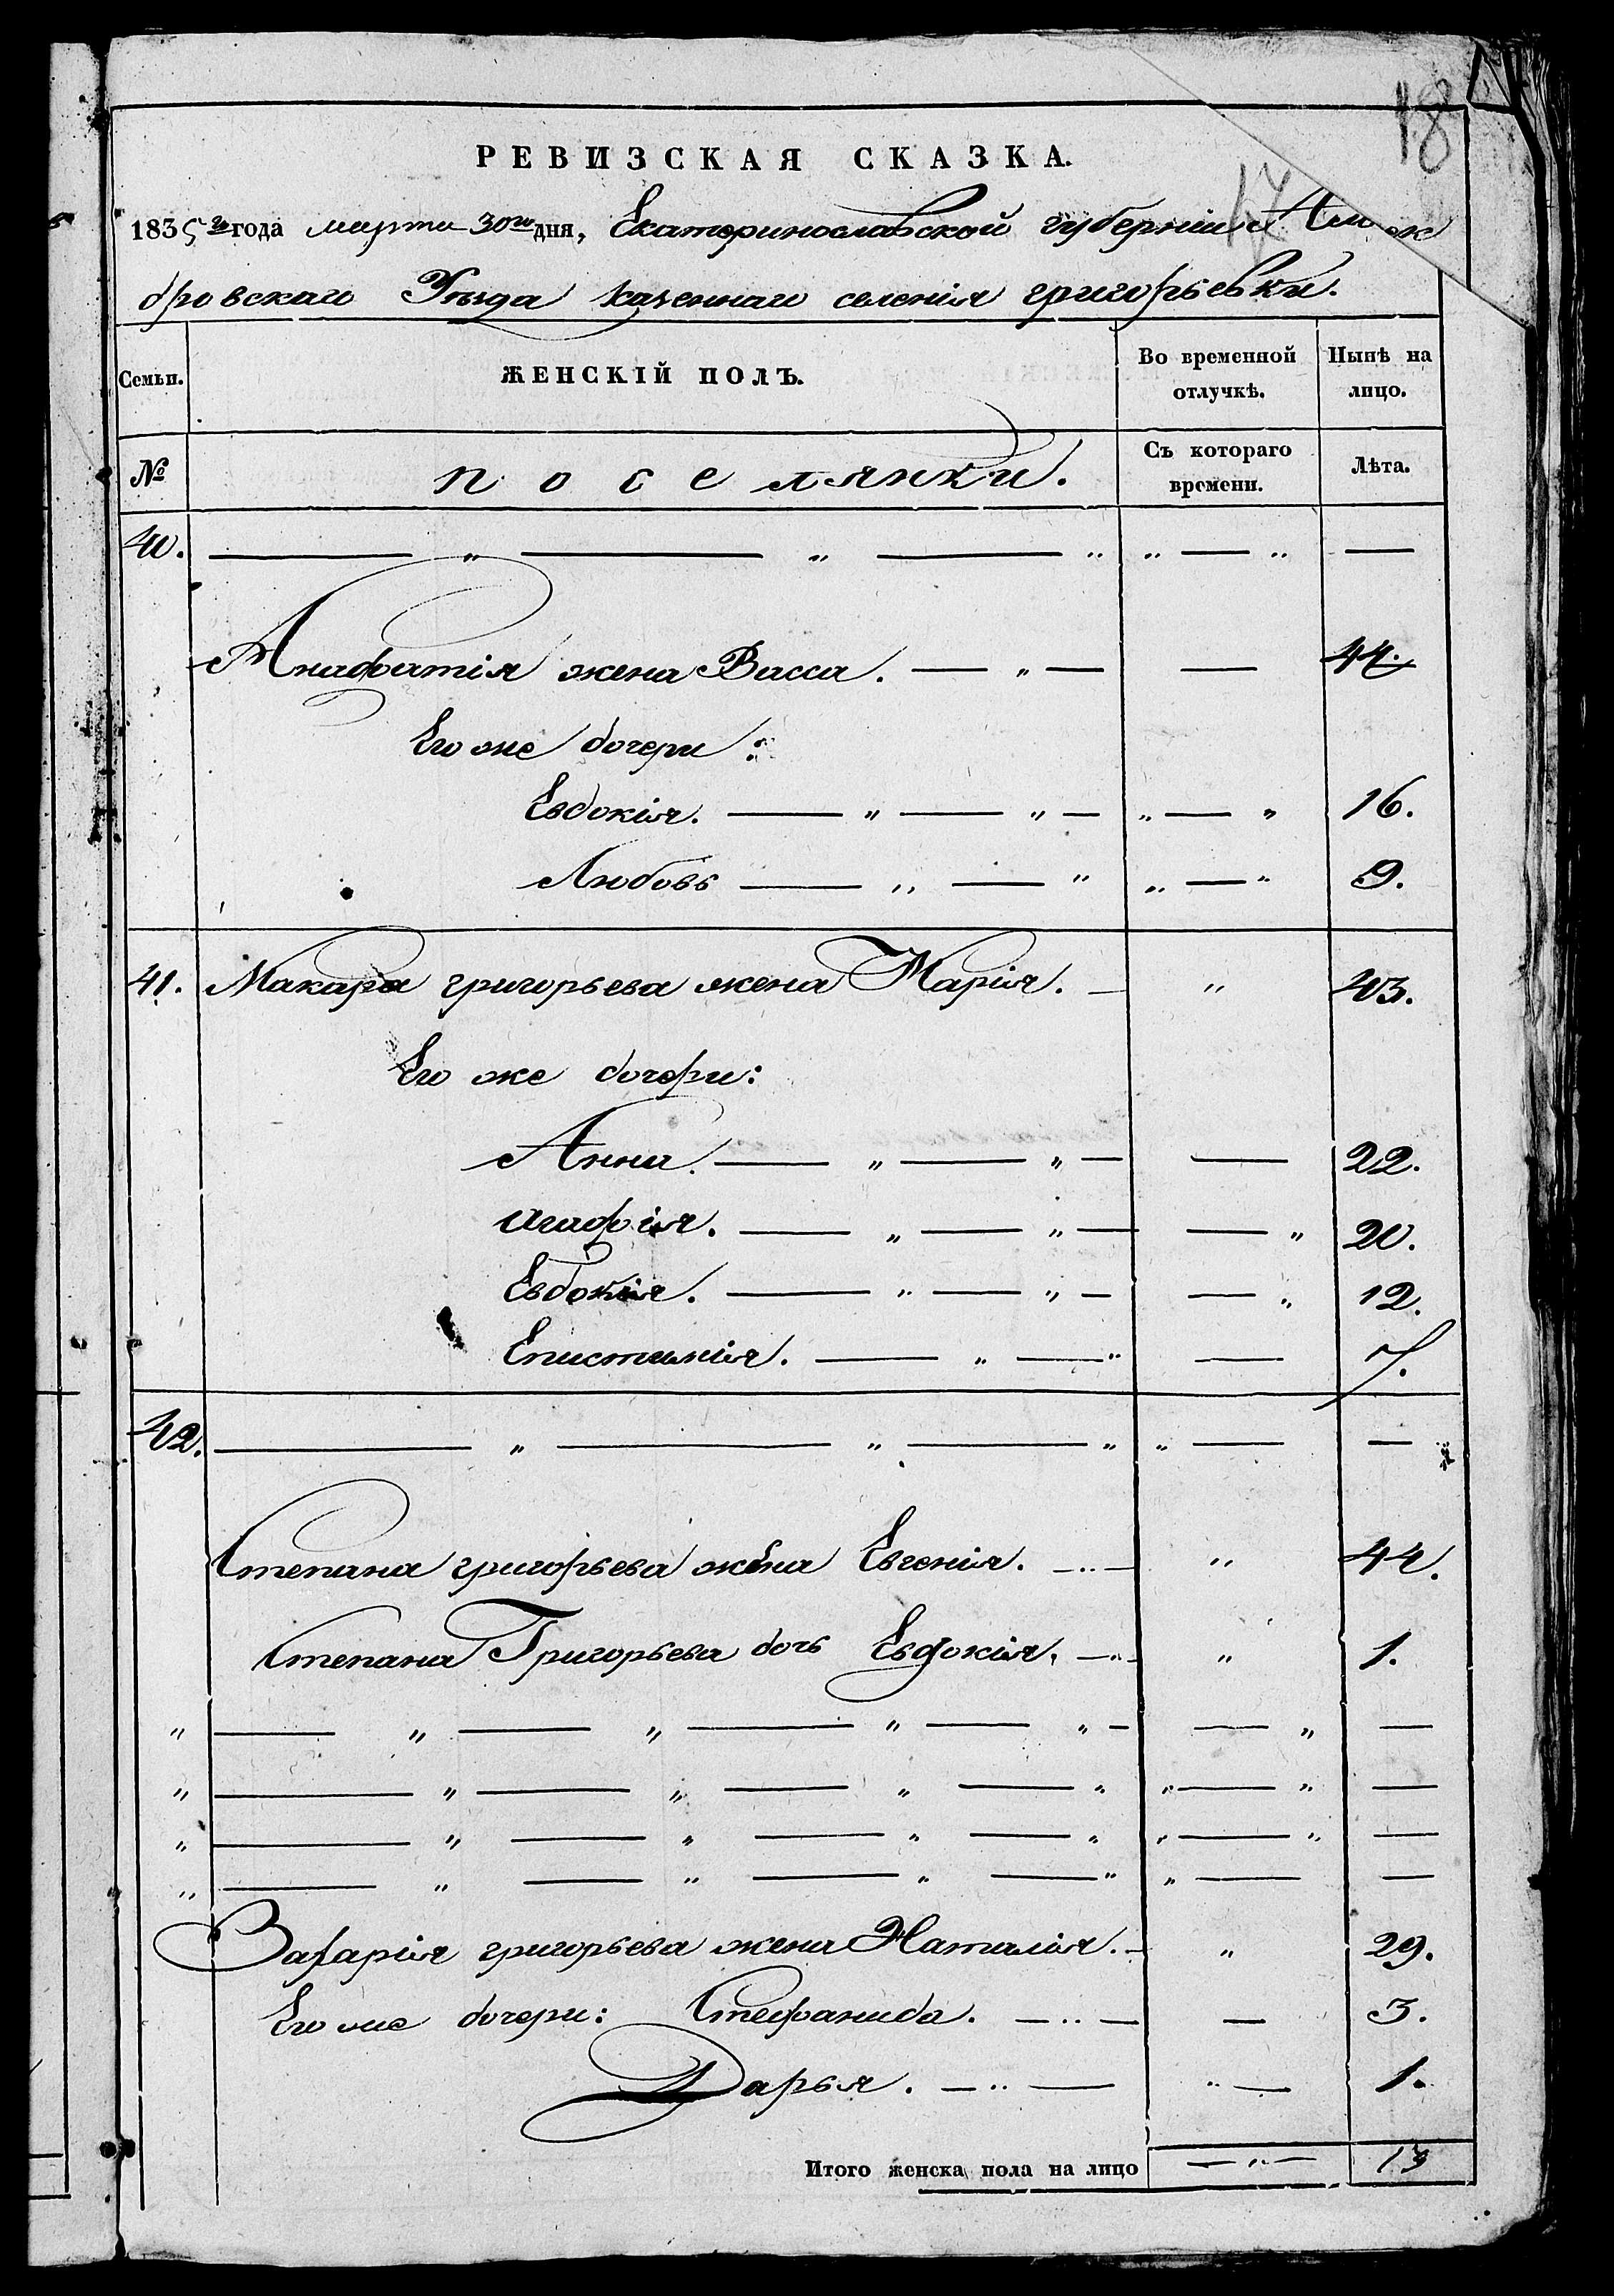 18
17
РЕВИЗСКАЯ СКАЗКА.
1835го года марта 30го дня, Екатеринославской губернии
дровскаго Уѣзда казеннаго селенія григорьевки.
Семьи. ЖЕНСКІЙ ПОЛЪ. Во временной отлучкѣ. Нынѣ на лицо.
№ поселянки. Съ котораго времени. Лѣта.
40. — „ — „ — „ „ — „ —
жена Васса. — „ — — 44.
Его же дочери:
Евдокія. — „ — „ — „ — „ 16.
Любовь — „ — „ „ — „ 9.
41. Макара григорьева жена Марія. — „ 43.
Его же дочери:
Анна. — „ — „ — — 22.
агафія. — „ — „ — — „ 20.
Евдокія. — „ — „ — — „ 12.
Епистимія. — „ — „ — 7.
42. — „ — „ — „ „ — —
Степана григорьева жена Евгенія. — „ — „ 44.
Степана Григорьева дочь Евдокія. — „ — „ 1.
„ — „ — „ — „ — „ — — „ —
„ — „ — „ — „ — „ „ — „ —
„ — „ — „ — „ — „ „ — „ —
„ — „ — „ — „ — „ „ — —
Захарія григорьева жена Наталія. — „ 29.
Его же дочери: Стефанида. — „ — — 3.
Дарья. — „ — „ — 1.
Итого женска пола на лицо — „ — 13